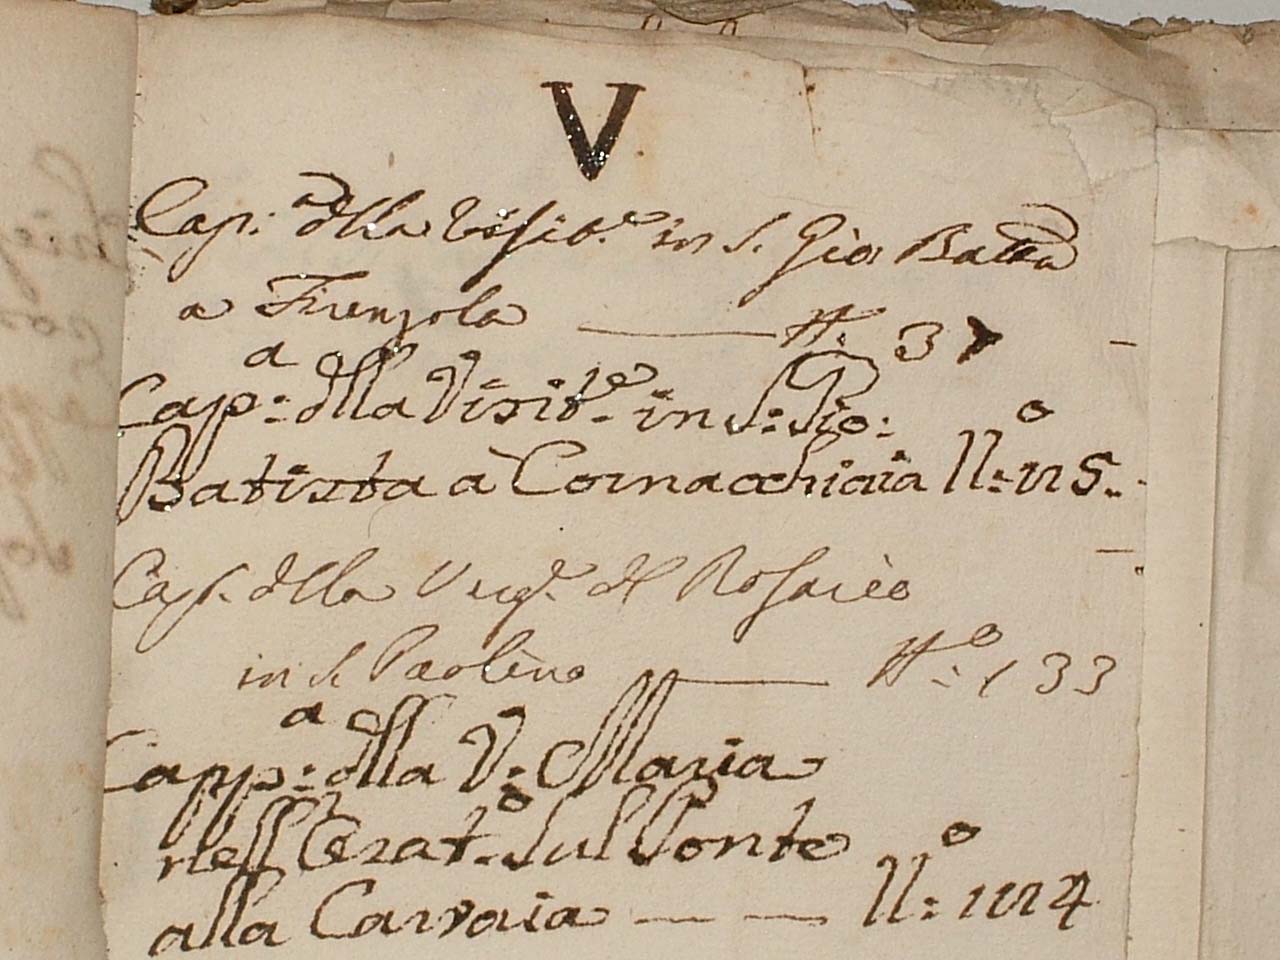 V
Cap:a dlla Visit.e in S. Gio: Batta
a Firenzola — N.o 37
Cap:a dlla Visit.e in S: Gio:
Batista a Cornacchiaia N:o 115.
Cap. dlla Verg.e dl Rosario
in S. Paolino — N:o 133
Capp:a dlla V: Maria
nell Orat:o Sul Ponte
alla Carraia — — N:o